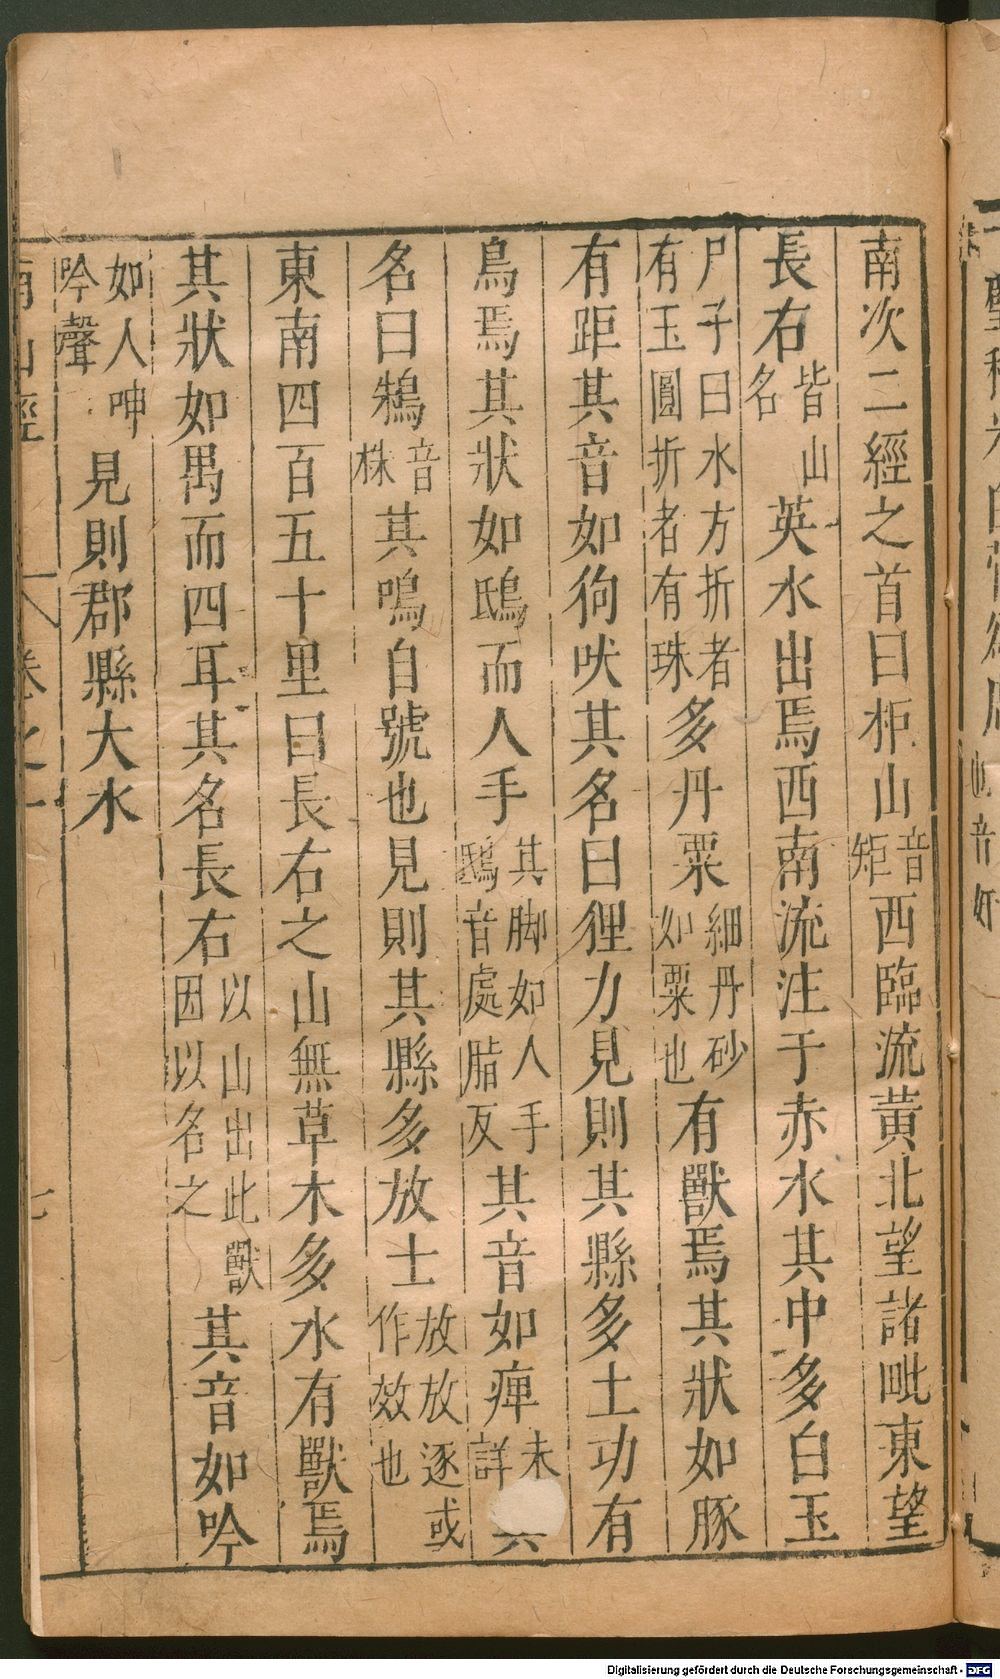 南次二經之首曰柜山音矩西臨流黃北望諸毗東望
長右皆山名英水出焉西南流注于赤水其中多白玉
尸子曰水方折者有玉圓折者有珠多丹粟細丹砂如粟也有獸焉其狀如豚
有距其音如狗吠其名曰狸力見則其縣多土功有
鳥焉其狀如鴟而人手其脚如人手鴟音處脂反其音如痺未詳其
名曰鴸音株其鳴自號也見則其縣多放士放放逐或作效也
東南四百五十里曰長右之山無草木多水有獸焉
其狀如禺而四耳其名長右以山出此獸因以名之其音如吟
如人呻吟聲見則郡縣大水
南山經 卷之一 七
Digitalisierung gefördert durch die Deutsche Forschungsgemeinschaft - DFG